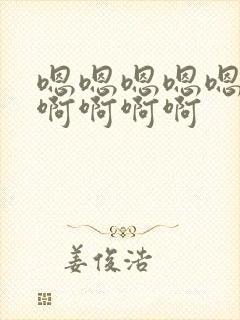 嗯嗯嗯嗯嗯
啊啊啊啊
姜俊浩